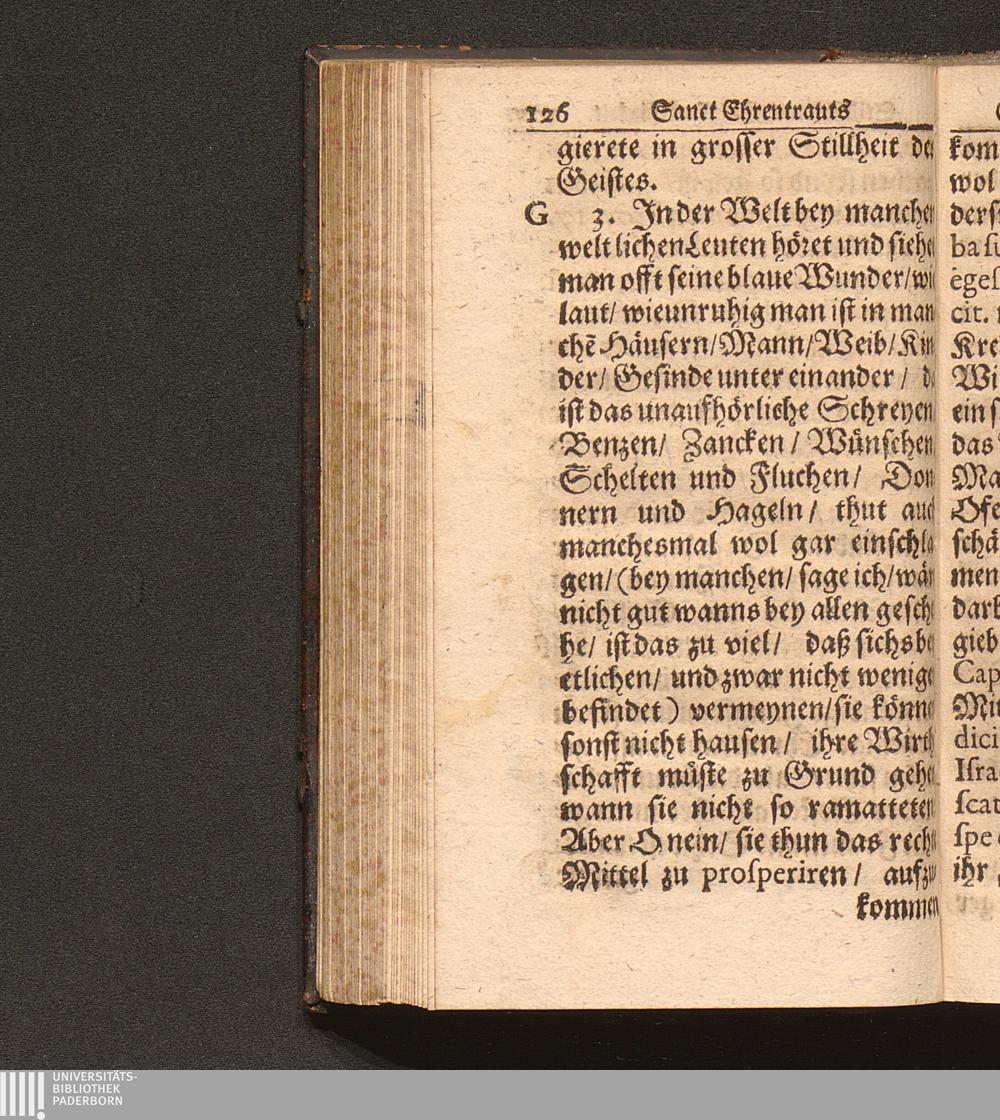 126 Sanct Ehrentrauts
gierete in grosser Stillheit des
Geistes.
G 3. In der Welt bey manchen
welt lichen Leuten höret und siehet
man offt seine blaue Wunder/ wie
laut/ wie unruhig man ist in man
chẽ Häusern/ Mann/ Weib/ Kin
der/ Gesinde unter einander / da
ist das unaufhörliche Schreyen
Benzen/ Zancken / Wünschen
Schelten und Fluchen/ Don
nern und Hageln/ thut auch
manchesmal wol gar einschla
gen/ (bey manchen/ sage ich/ wär
nicht gut wanns bey allen gesche
he/ ist das zu viel/ daß sichs bey
etlichen/ und zwar nicht wenige
befindet) vermeynen/ sie könne
sonst nicht hausen / ihre Wirth
schafft müste zu Grund gehe
wann sie nicht so ramatteten
Aber O nein/ sie thun das rechte
Mittel zu prosperiren / aufzu
kommen
kom
wol
ders
ba su
eges
cit.
Kre
Wi
ein s
das
Ma
Ofe
schä
men
dar
gieb
Cap
Mit
dici
Isra
scat
spe
ihr
UNIVERSITÄTS-
BIBLIOTHEK
PADERBORN